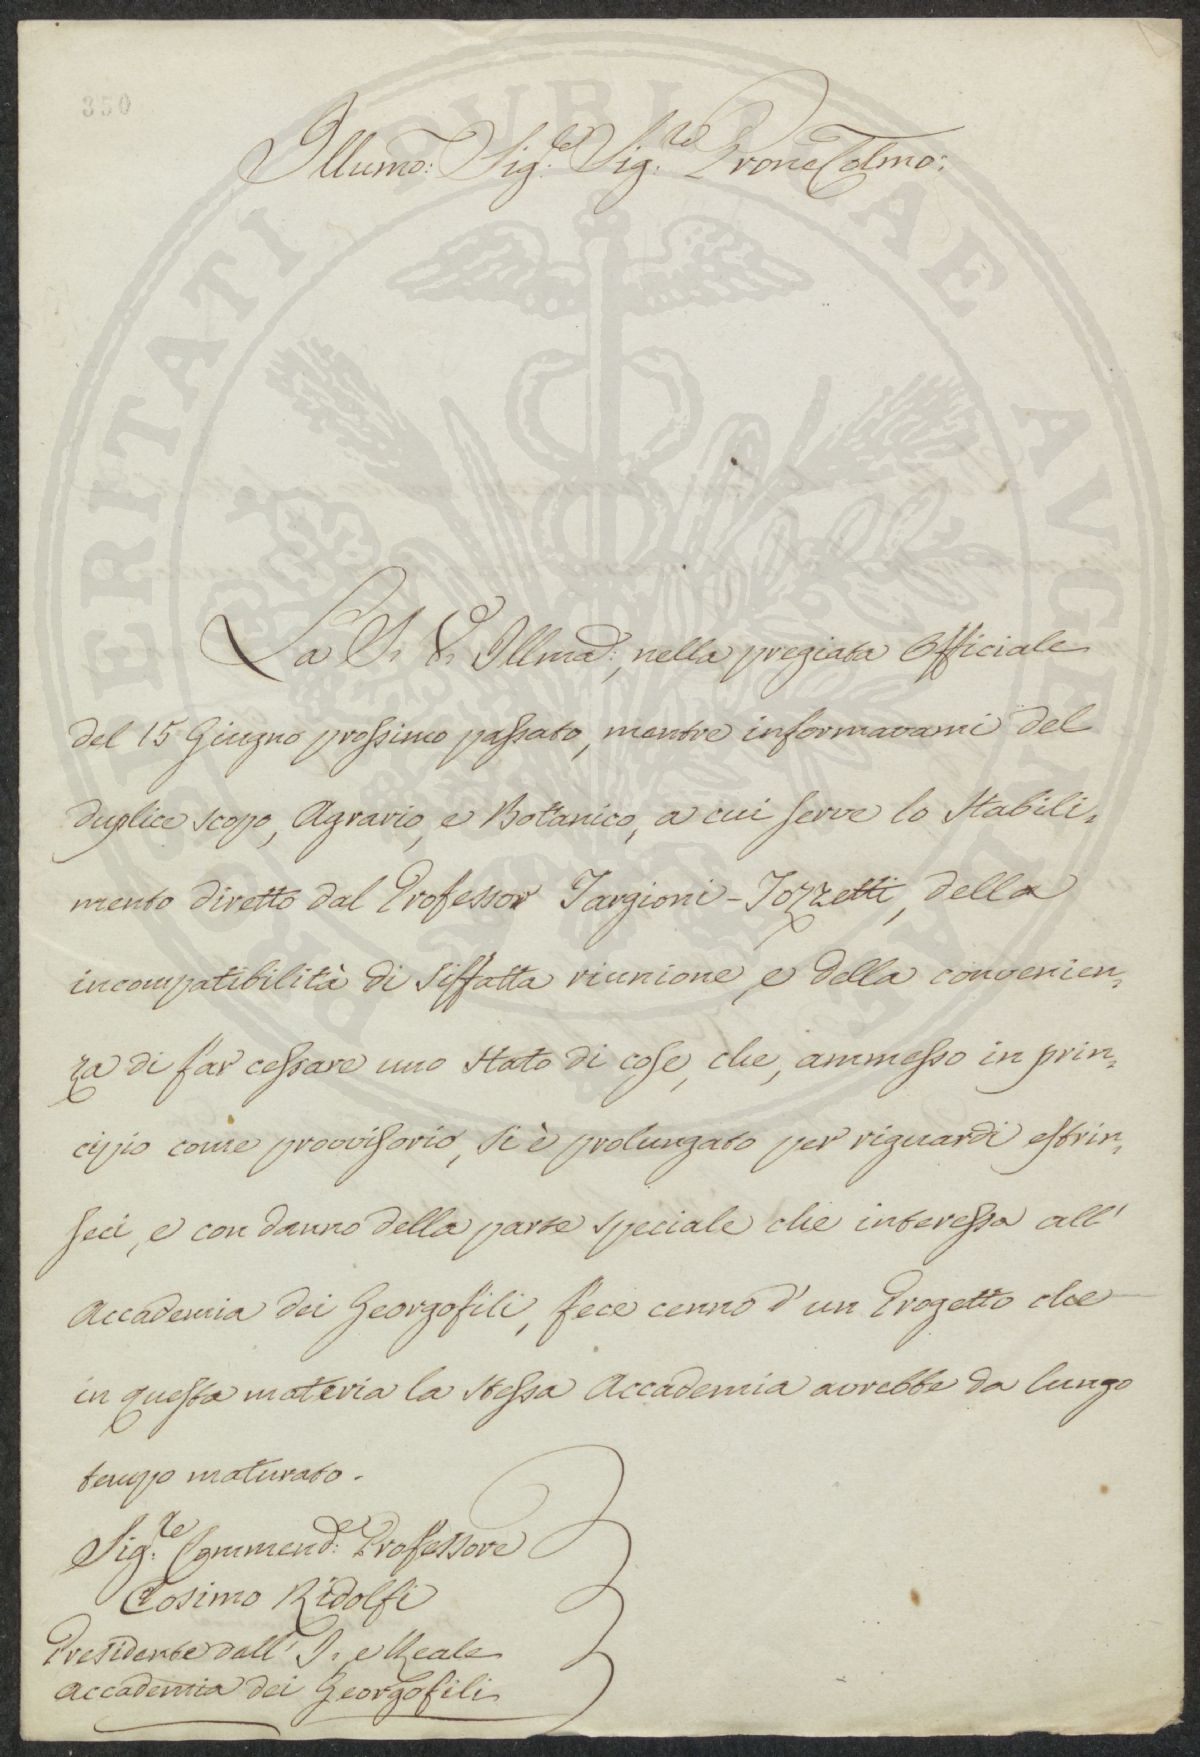 350
Illumo: Sig.re Sig.re Prone Colmo:
La S. V. Illma:, nella pregiata Officiale
del 15 Giugno prossimo passato, mentre informavami del
duplice scopo, Agrario, e Botanico, a cui serve lo Stabili=
mento diretto dal Professor Targioni-Tozzetti, della
incompatibilità di siffatta riunione, e della convenien=
za di far cessare uno stato di cose, che, ammesso in prin=
cipio come provvisorio, si è prolungato per riguardi estrin=
seci, e con danno della parte speciale che interessa all'
Accademia dei Georgofili, fece cenno d'un Progetto che
in questa materia la stessa Accademia avrebbe da lungo
tempo maturato.
Sig.re Commend: Professore
Cosimo Ridolfi
Presidente dell' I. e Reale
Accademia dei Georgofili
PROSPERITATI PUBLICAE AVGENDAE